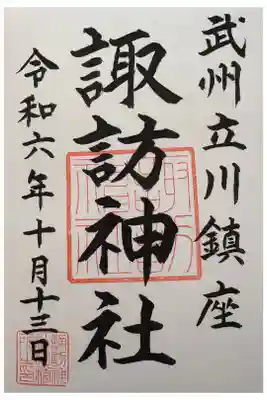 武州立川鎮座
諏訪神社
令和六年十月十三日